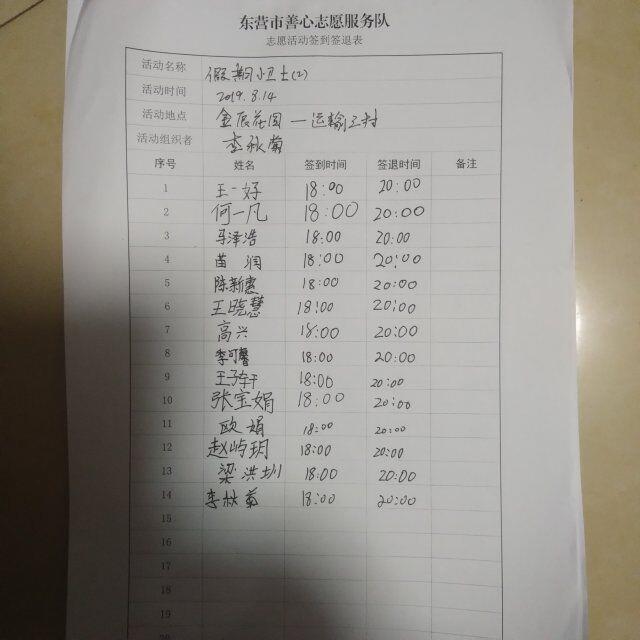 东营市善心志愿服务队
志愿活动签到签退表
活动名称 假期小卫士(2)
活动时间 2019.8.14
活动地点 金辰花园—运输三村
活动组织者 李秋菊
序号 姓名 签到时间 签退时间 备注
1 王一好 18:00 20:00
2 何一凡 18:00 20:00
3 马泽浩 18:00 20:00
4 苗润 18:00 20:00
5 陈新惠 18:00 20:00
6 王晓慧 18:00 20:00
7 高兴 18:00 20:00
8 李可馨 18:00 20:00
9 王子轩 18:00 20:00
10 张宝娟 18:00 20:00
11 欧娟 18:00 20:00
12 赵屿玥 18:00 20:00
13 梁洪圳 18:00 20:00
14 李秋菊 18:00 20:00
15
16
17
18
19
20